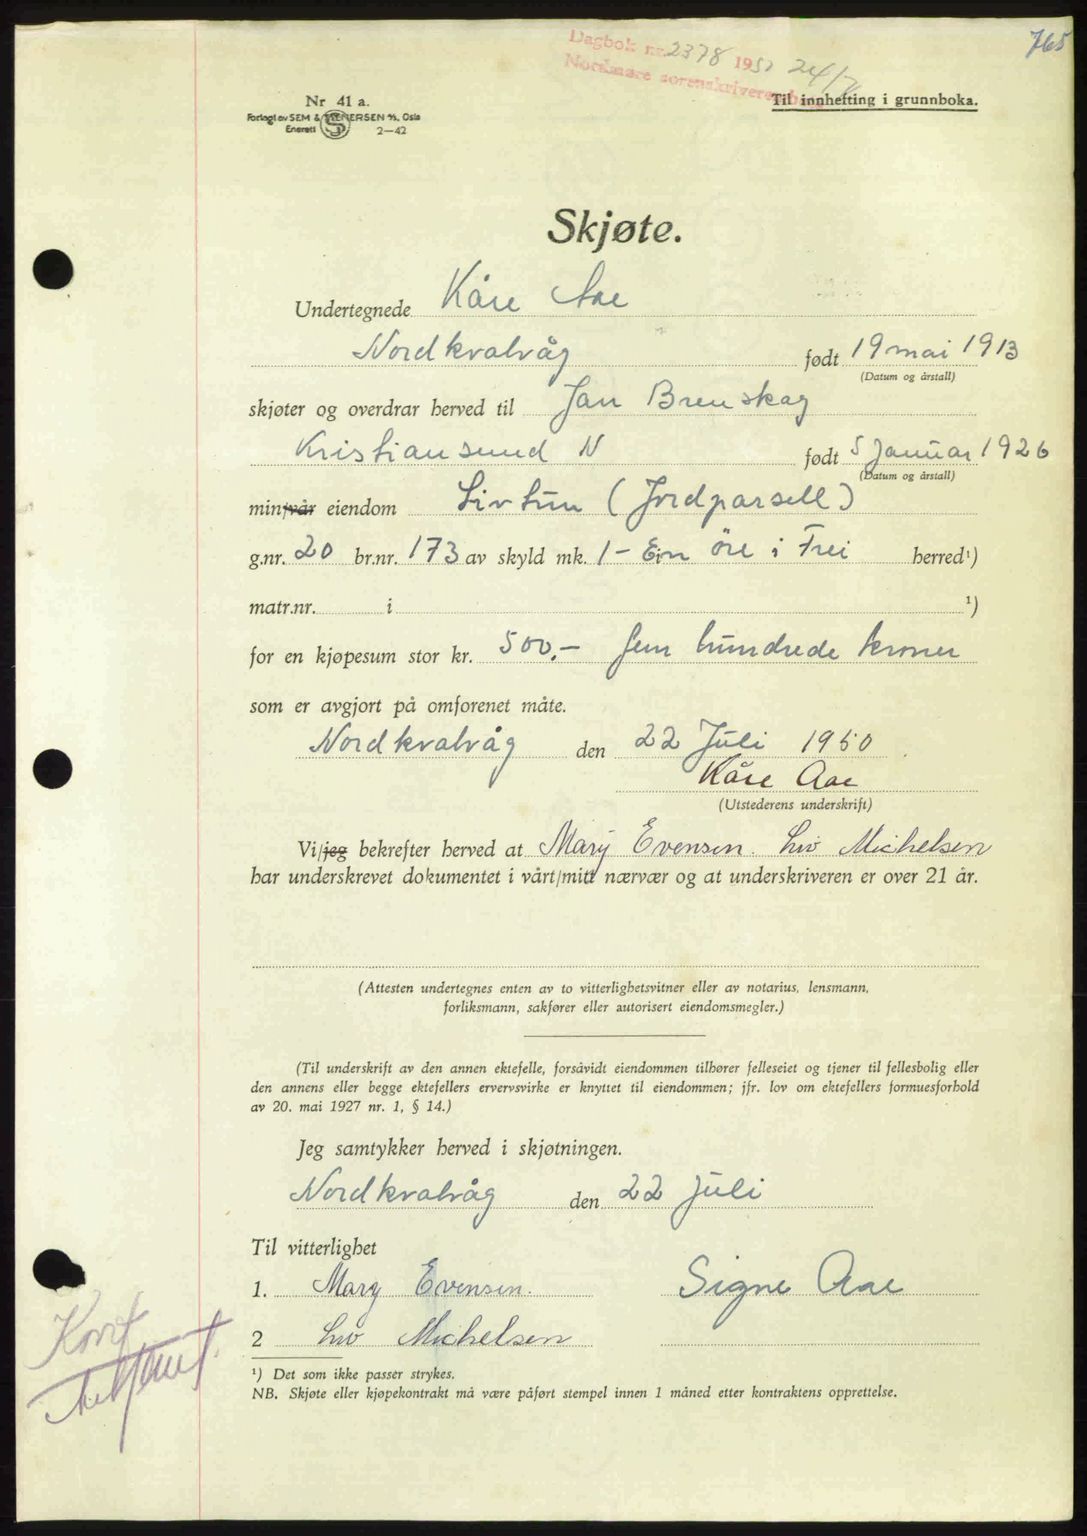 765
Dagbok nr. 2378 1950 24/7
Nordmøre sorenskriverembede
Nr 41 a.
Forlagt av SEM & STENERSEN A/S, Oslo
Enerett 2—42
Til innhefting i grunnboka.
Skjøte.
Undertegnede Kåre Aae
Nordkvalvåg født 19 mai 1913
(Datum og årstall)
skjøter og overdrar herved til Jan Brenskag
Kristiansund N født 5 Januar 1926
(Datum og årstall)
min/vår eiendom Livtun (Jordparsell)
g.nr. 20 br.nr. 173 av skyld mk. 1 — Ein öre i Frei herred¹)
matr.nr. i ¹)
for en kjøpesum stor kr. 500.— fem hundrede kroner
som er avgjort på omforenet måte.
Nordkvalvåg den 22 Juli 1950
Kåre Aae
(Utstederens underskrift)
Vi/jeg bekrefter herved at Mary Evensen. Liv Michelsen
har underskrevet dokumentet i vårt/mitt nærvær og at underskriveren er over 21 år.
(Attesten undertegnes enten av to vitterlighetsvitner eller av notarius, lensmann,
forliksmann, sakfører eller autorisert eiendomsmegler.)
(Til underskrift av den annen ektefelle, forsåvidt eiendommen tilhører felleseiet og tjener til fellesbolig eller
den annens eller begge ektefellers ervervsvirke er knyttet til eiendommen; jfr. lov om ektefellers formuesforhold
av 20. mai 1927 nr. 1, § 14.)
Jeg samtykker herved i skjøtningen.
Nordkvalvåg den 22 Juli
Til vitterlighet
1. Mary Evensen. Signe Aae
2 Liv Michelsen
¹) Det som ikke passer strykes.
NB. Skjøte eller kjøpekontrakt må være påført stempel innen 1 måned etter kontraktens opprettelse.